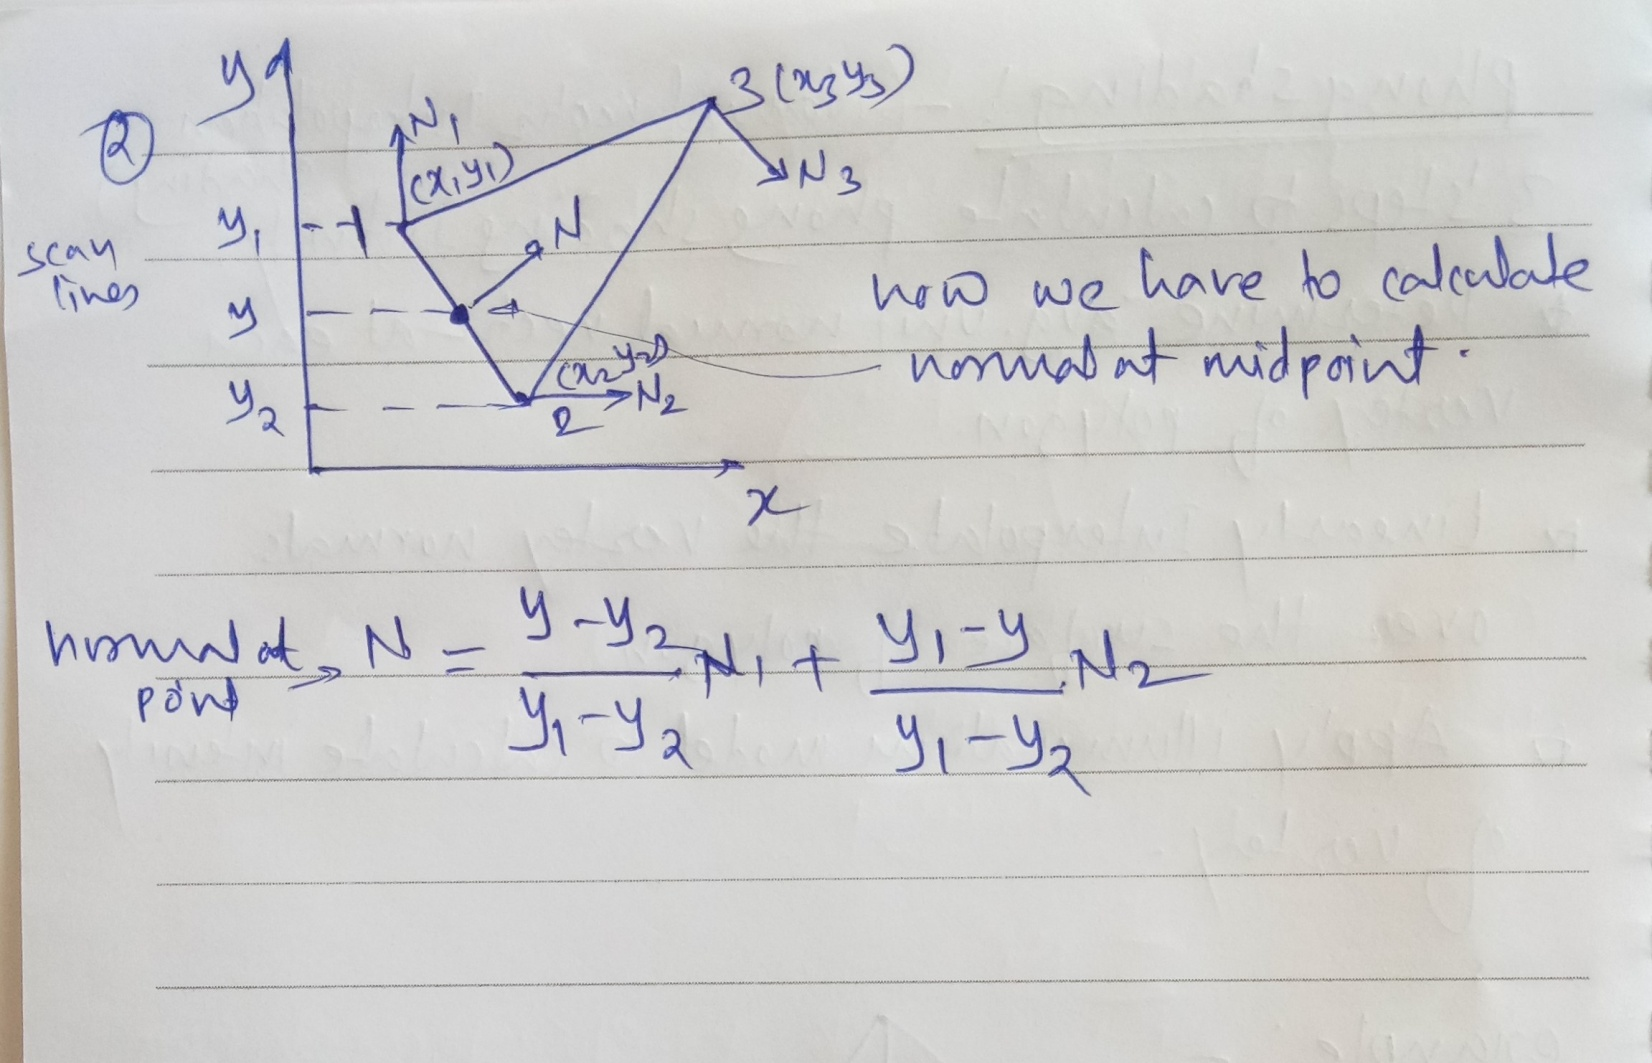 ②
y
N₁
(x₁y₁)
3(x₃y₃)
N₃
scan
lines
y₁
1
N
y
(x₂y₂)
y₂
2
N₂
x
now we have to calculate
normal at midpoint.
normal at
point → N = y-y₂/y₁-y₂ . N₁ + y₁-y/y₁-y₂ . N₂